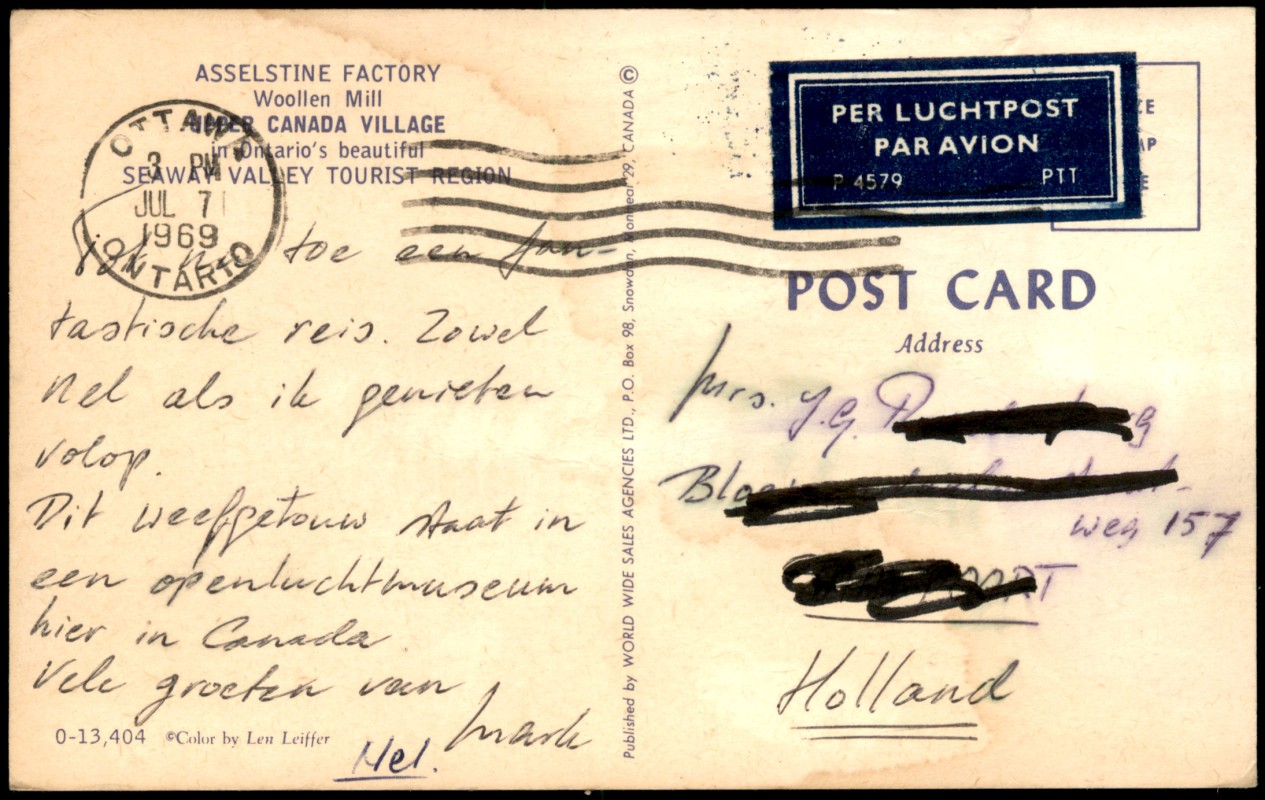 ASSELSTINE FACTORY
Woollen Mill
UPPER CANADA VILLAGE
in Ontario's beautiful
SEAWAY VALLEY TOURIST REGION
OTTAWA
3 PM
JUL 7
1969
ONTARIO
toe een fan-
tastische reis. Zowel
Nel als ik genieten
volop.
Dit weefgetouw staat in
een openluchtmuseum
hier in Canada
Vele groeten van
Mark
Nel.
0-13,404 ©Color by Len Leiffer
Published by WORLD WIDE SALES AGENCIES LTD., P.O. Box 98, Snowdon, Montreal 29, CANADA ©
PER LUCHTPOST
PAR AVION
P 4579 PTT
POST CARD
Address
Mrs. J.G.
weg 157
Holland